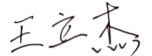 王立杰